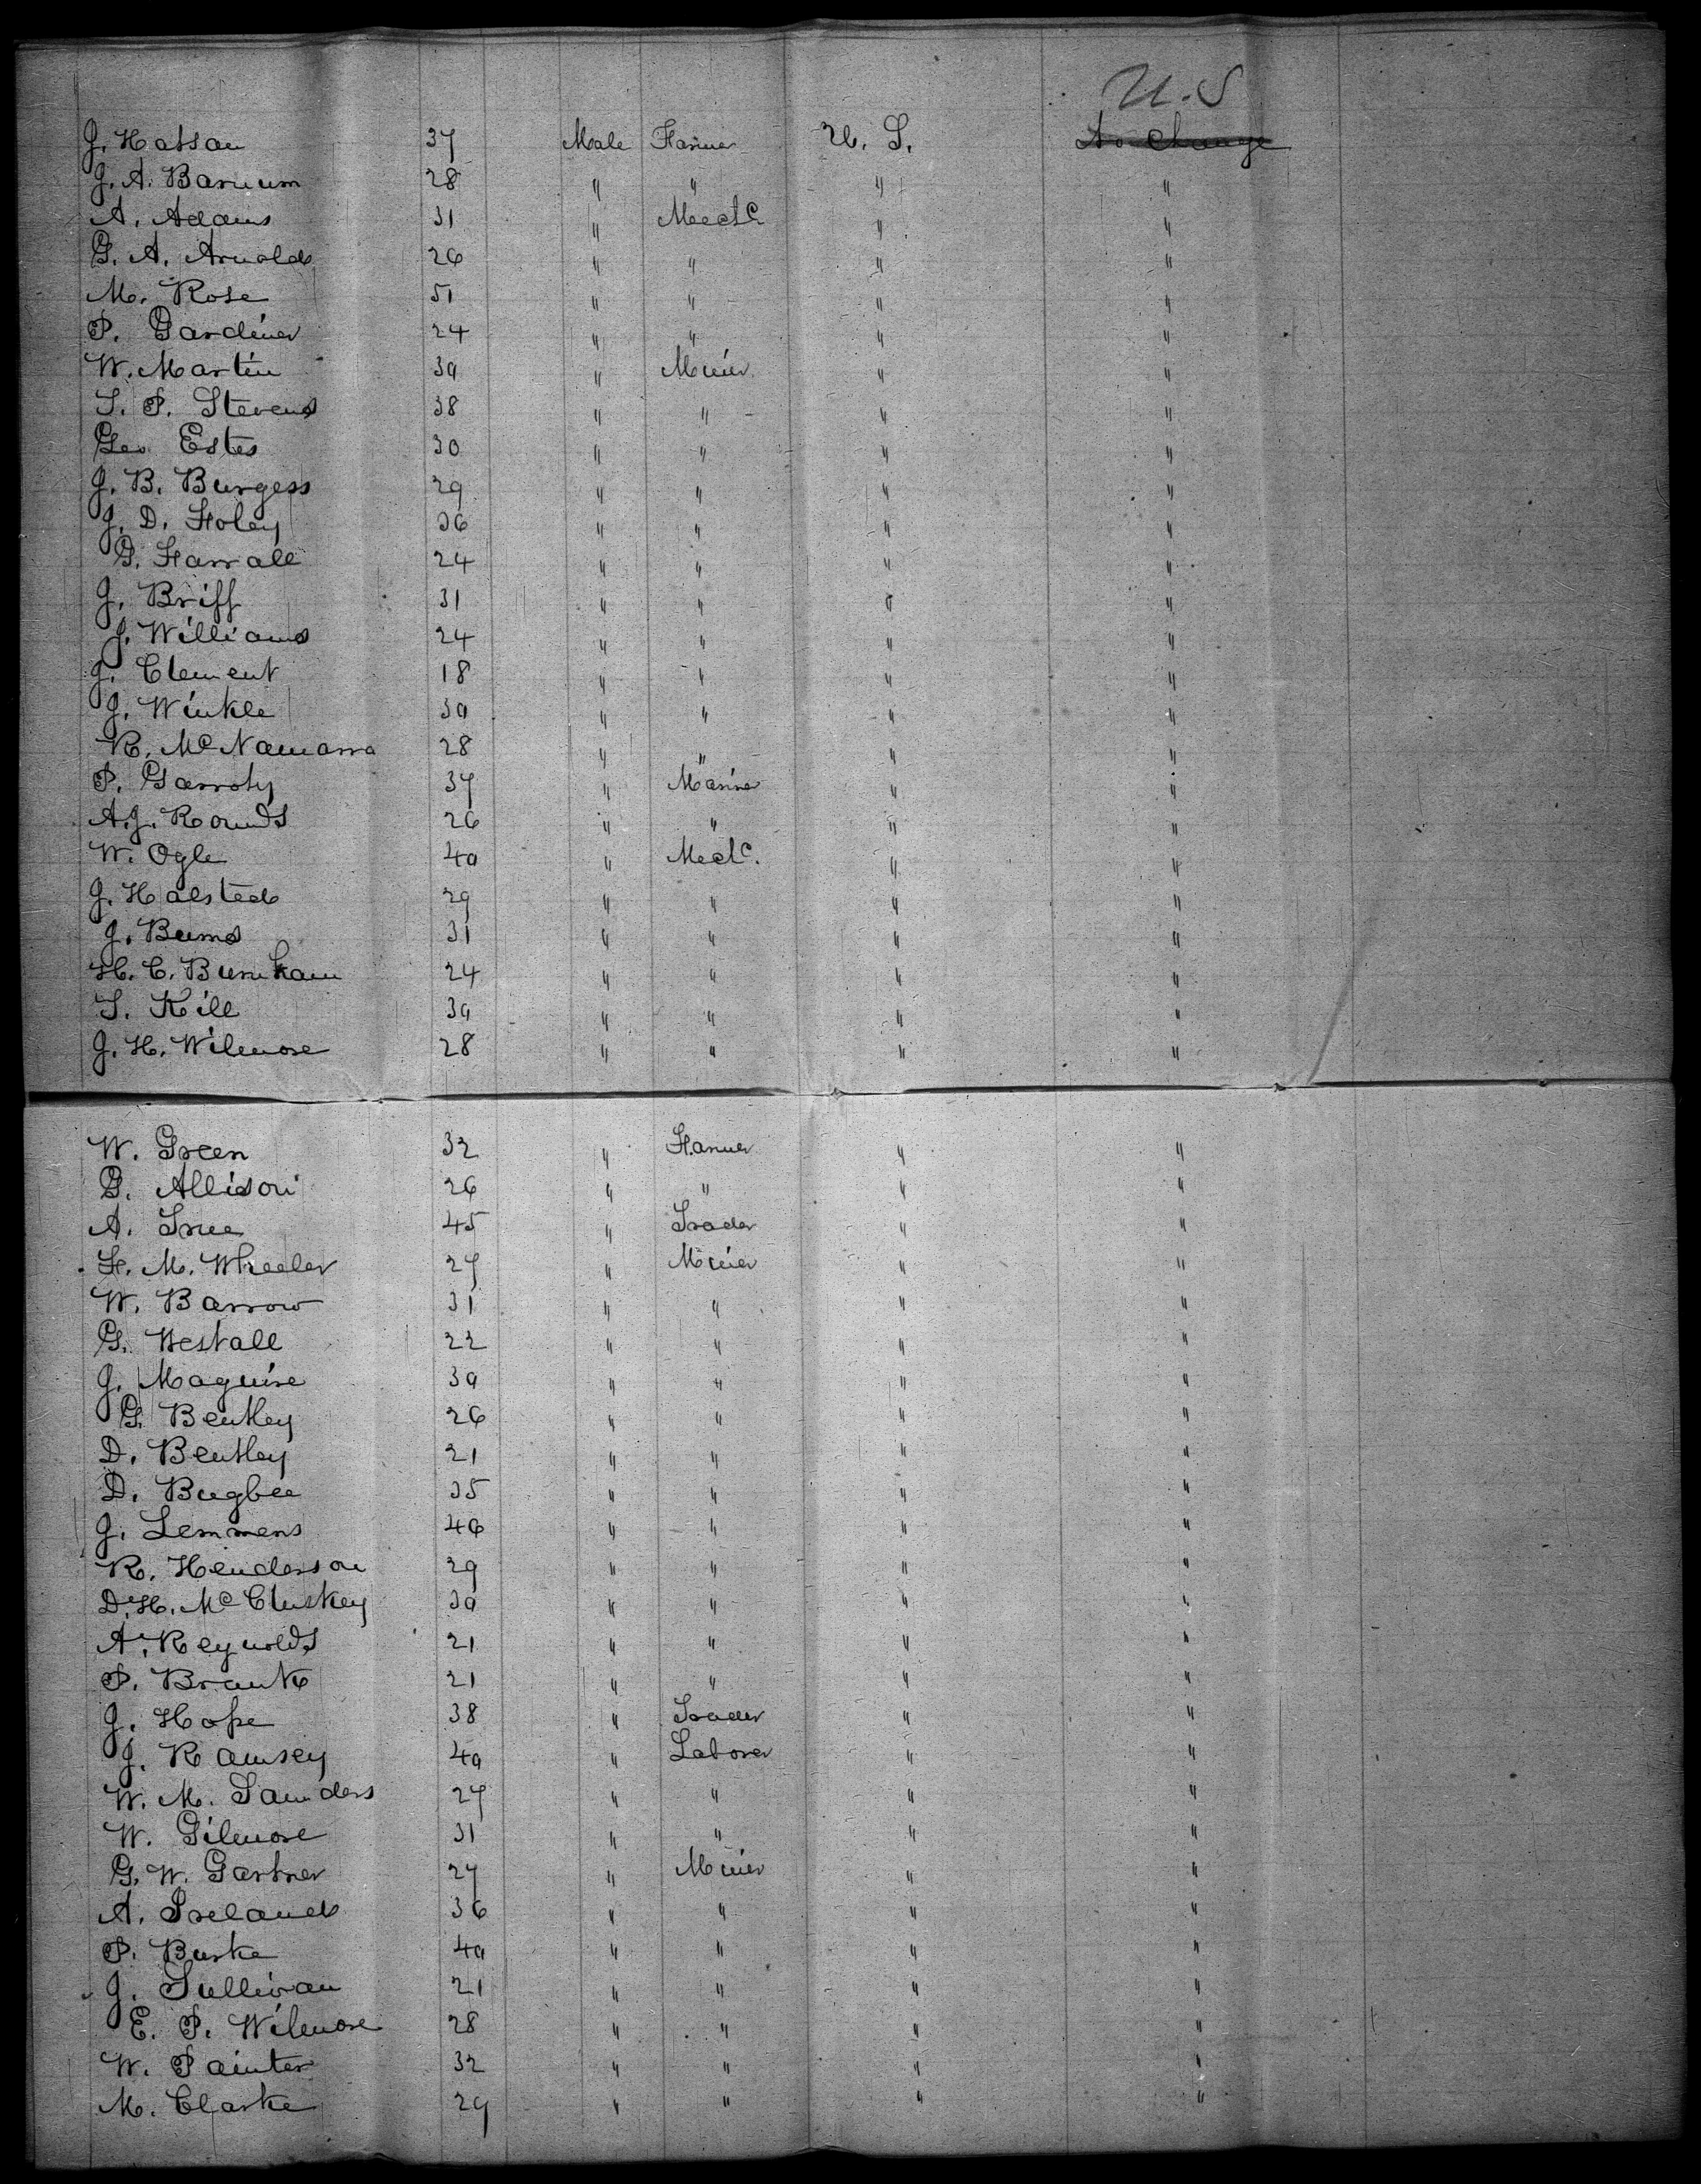 U.S
J. Hassan 37 Male Farmer U. S. No change
J. A. Barnum 28 " " " "
A. Adams 31 " Mectc " "
G. A. Arnold 26 " " " "
M. Rose 51 " " " "
P. Gardiner 24 " " " "
W. Martin 30 " Miner " "
S. P. Stevens 38 " " " "
Geo Estes 30 " " " "
J. B. Burgess 29 " " " "
J. D. Foley 36 " " " "
G. Farrall 24 " " " "
J. Briff 31 " " " "
J. Williams 24 " " " "
J. Clement 18 " " " "
J. Winkle 30 " " " "
R. McNamarra 28 " " " "
P. Garroty 37 " Marine " "
A. J. Rounds 26 " " " "
W. Ogle 40 " Mectc. " "
J. Halsted 29 " " " "
J. Burns 31 " " " "
H. C. Burnham 24 " " " "
S. Hill 30 " " " "
J. H. Wilmore 28 " " " "
W. Green 32 " Farmer " "
G. Allison 26 " " " "
A. True 45 " Trader " "
F. M. Wheeler 27 " Miner " "
W. Barrow 31 " " " "
G. Westall 22 " " " "
J. Maguire 30 " " " "
G. Bentley 26 " " " "
D. Bentley 21 " " " "
D. Bugbee 35 " " " "
J. Lemmens 46 " " " "
R. Henderson 29 " " " "
D. H. McCluskey 30 " " " "
A. Reynolds 21 " " " "
P. Brank 21 " " " "
J. Hope 38 " Trader " "
J. Ramsey 40 " Laborer " "
W. M. Saunders 27 " " " "
W. Gilmore 31 " " " "
G. W. Gartner 27 " Miner " "
A. Ireland 36 " " " "
P. Burke 40 " " " "
J. Sullivan 21 " " " "
E. P. Wilmore 28 " " " "
W. Painter 32 " " " "
M. Clarke 29 " " " "